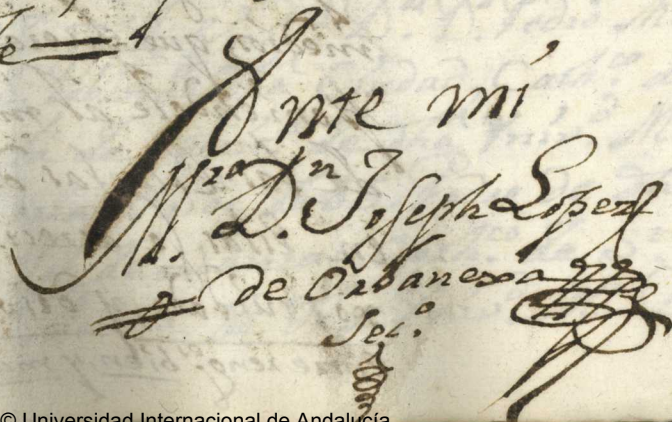 Ante mi
D.n Joseph Lopez
de Orbanexa
Sec.º
© Universidad Internacional de Andalucía